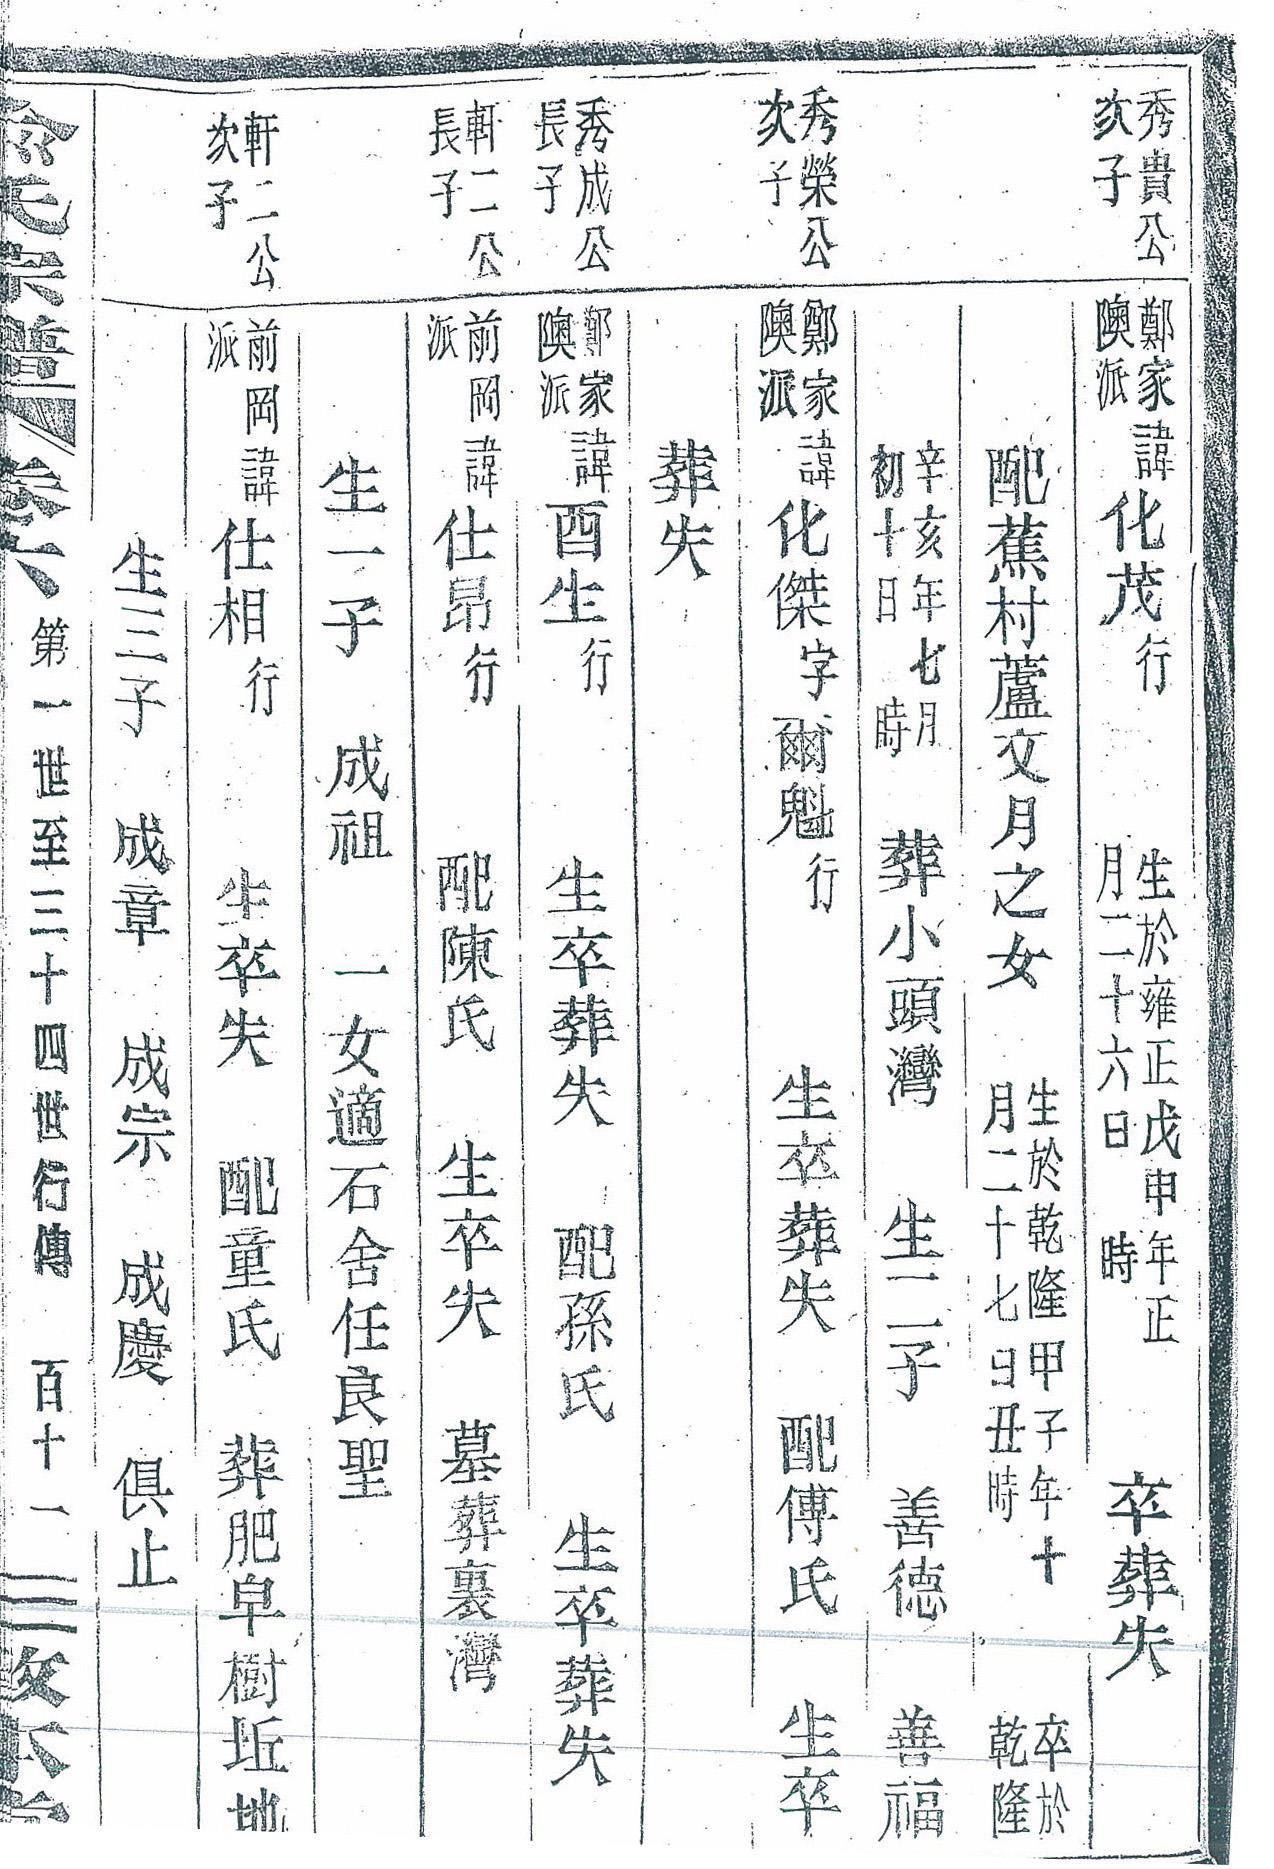 秀貴公次子
鄭家隩派諱化茂行 生於雍正戊申年正月二十六日 時 卒葬失
配蕉村蘆文月之女 生於乾隆甲子年十月二十七日丑時 卒於乾隆
辛亥年七月初十日 時 葬小頭灣 生二子 善德 善福
秀榮公次子
鄭家隩派諱化傑字爾魁行 生卒葬失 配傅氏 生卒
葬失
秀成公長子
鄭家隩派諱酉生行 生卒葬失 配孫氏 生卒葬失
軒二公長子
前岡派諱仕昂行 配陳氏 生卒失 墓葬裏灣
生一子 成祖 一女適石舍任良聖
軒二公次子
前岡派諱仕相行 生卒失 配童氏 葬肥皁樹坵地
生三子 成章 成宗 成慶 俱止
氏宗譜 卷六 第一世至三十四世行傳 百十一